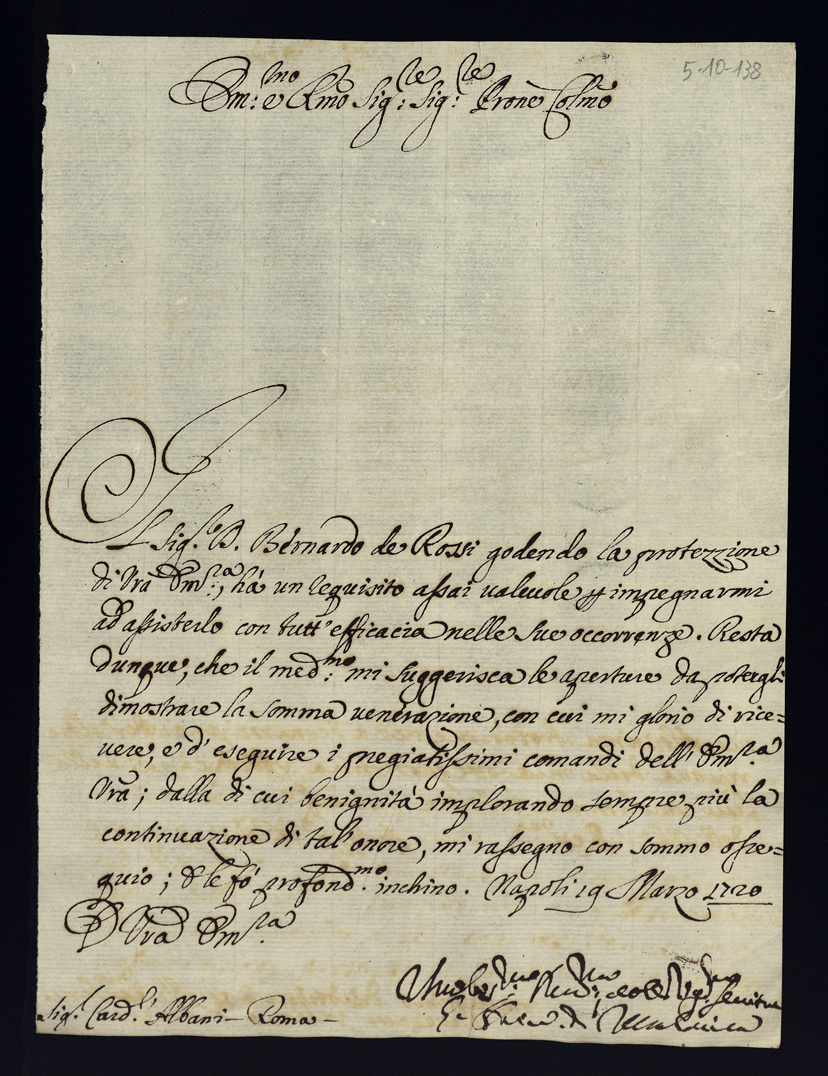 5-10-138
Em:mo e Rmo Sig:re Sig:re Prone Colmo
Il Sig.re D. Bernardo de Rossi godendo la protezzione
di Vra Em:za, há un requisito assai valevole p impegnarmi
ad assisterlo con tutt'efficacia nelle sue occorrenze. Resta
dunque, che il med:mo mi suggerisca le aperture da potergli
dimostrare la somma venerazione, con cui mi glorio di rice=
vere, e d'eseguire i pregiatissimi comandi dell' Em.za
Vra; dalla di cui benignitá implorando sempre piú la
continuazione di tal'onore, mi rassegno con sommo osse=
quio; e le fó profond.mo inchino. Napoli 19 Marzo 1720
D Vra Em.za
Sig.r Card.l Albani - Roma -